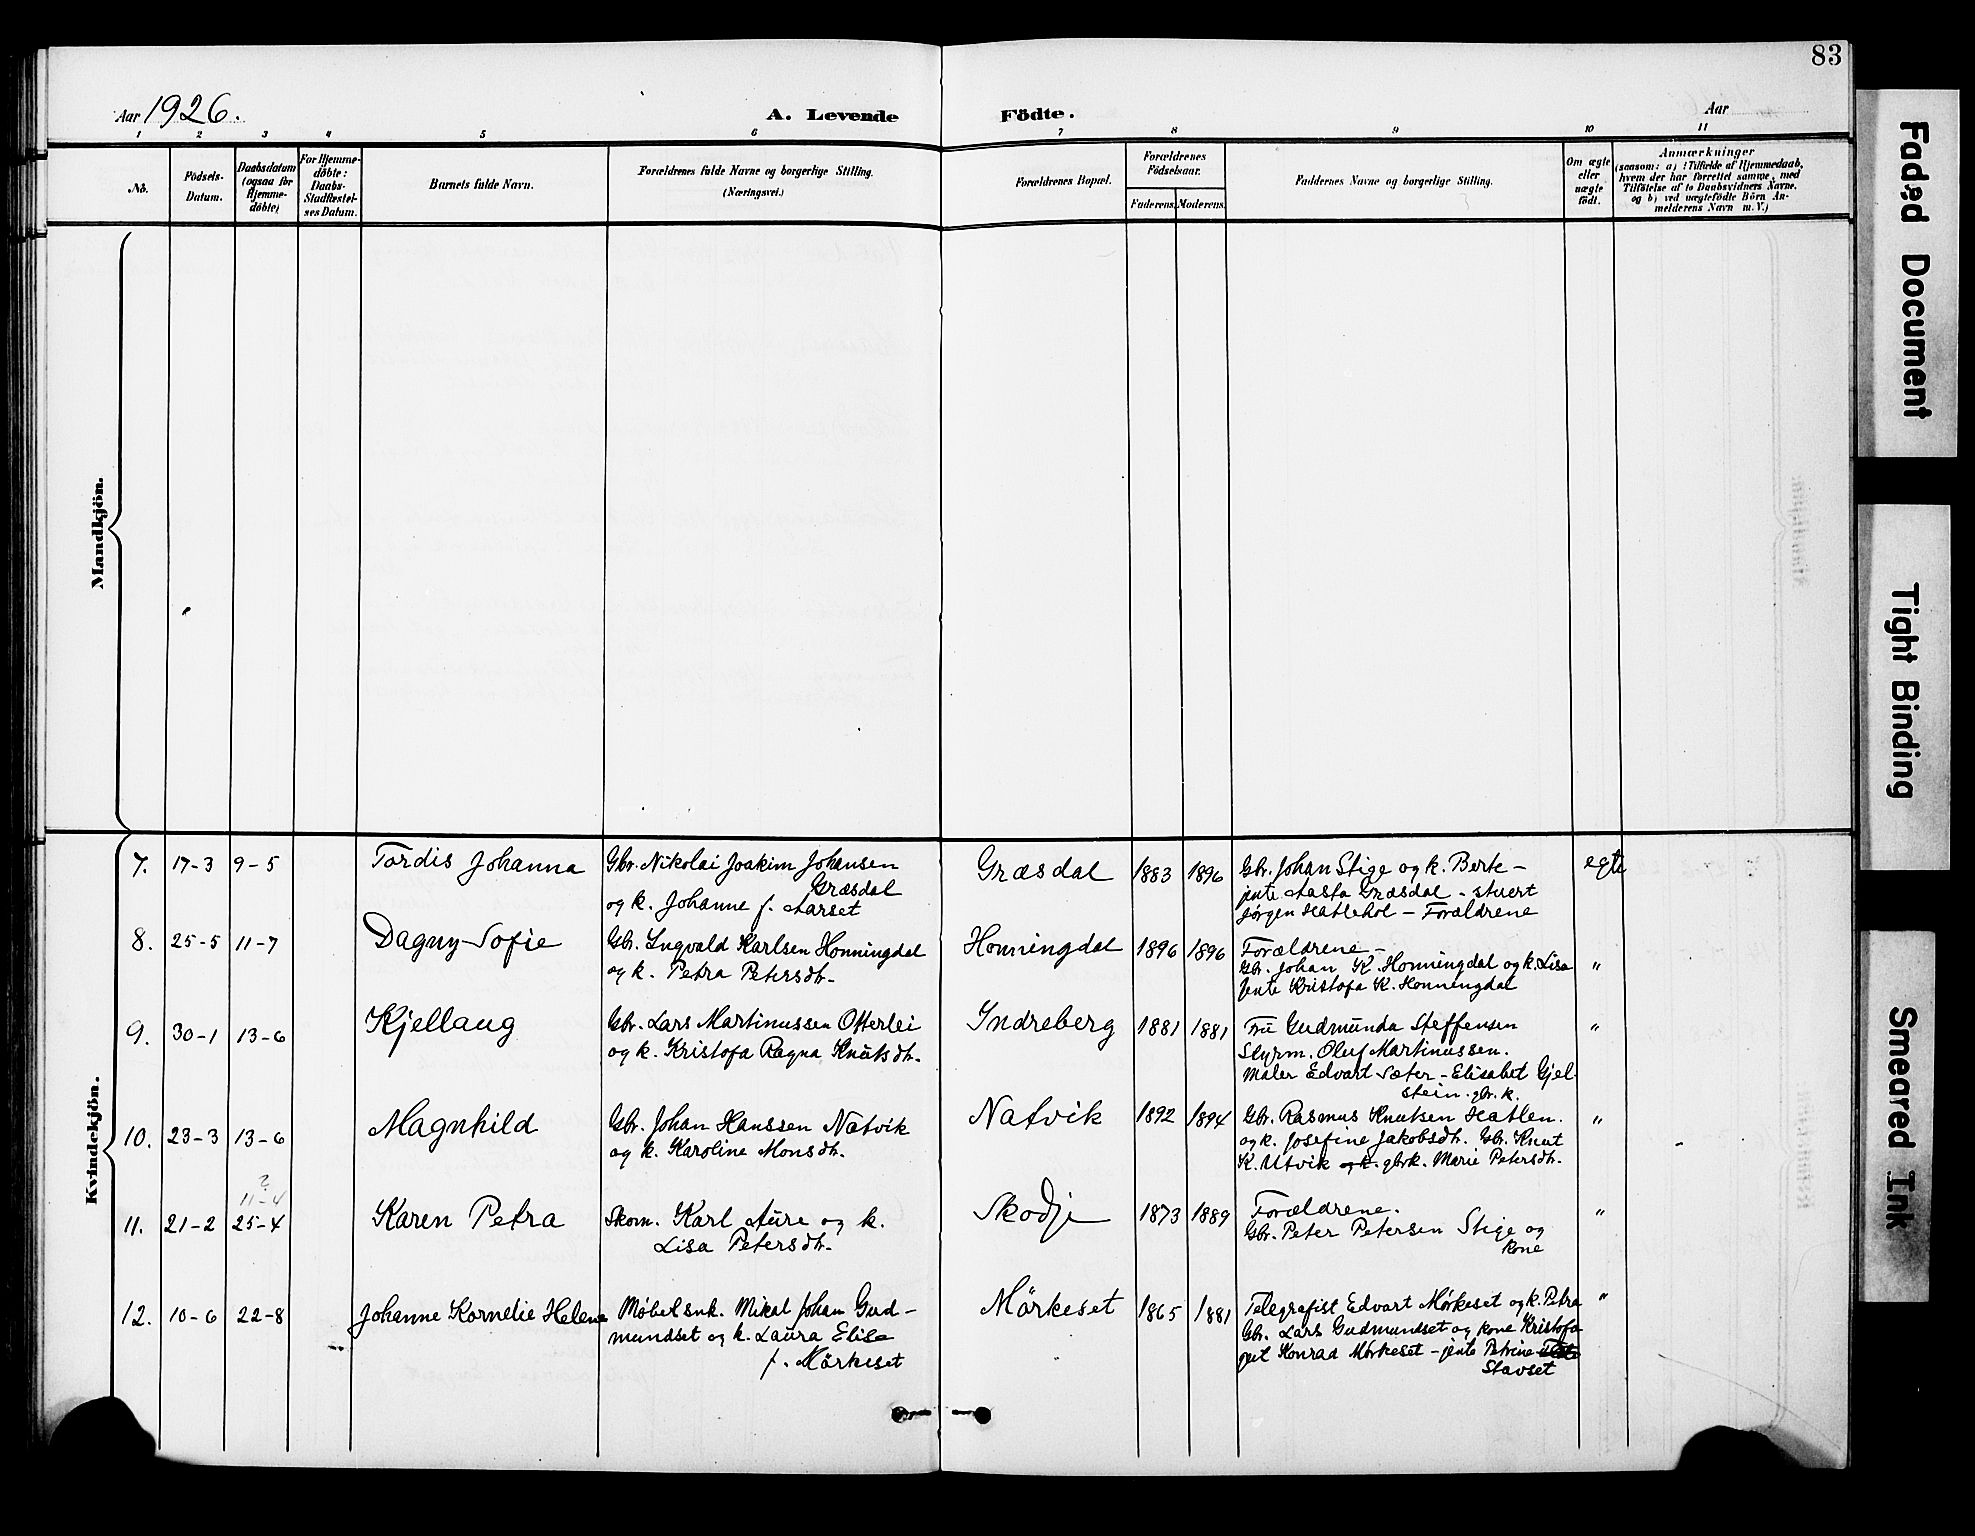 83
Aar 1926. A. Levende Födte. Aar
1 2 3 4 5 6 7 8 9 10 11
No. Födsels-Datum. Daabsdatum (ogsaa for Hjemme-döbte) For Hjemme-döbte: Daabs-Stadfæstel-ses Datum. Barnets fulde Navn. Forældrenes fulde Navne og borgerlige Stilling. (Næringsvei.) Forældrenes Bopæl. Forældrenes Födselsaar. Faderens. Moderens. Faddernes Navne og borgerlige Stilling. Om ægte eller uægte födt. Anmærkninger
(saasom: a) i Tilfælde af Hjemmedaab,
hvem der har forrettet samme, med
Tilföielse af to Daabsvidners Navne.
og b) ved uægtefödte Börn An-
melderens Navn m. V.)
Mandkjön.
Kvindekjön.
7. 17-3 9-5 Tordis Johanna Gbr. Nikolai Joakim Johansen Græsdal 1883 1896 Gbr. Johan Stige og k. Berte – egte
Græsdal jente Aasta Græsdal – stuert
og k. Johanne f. Aarset Jørgen Hatlehol – Forældrene
8. 25-5 11-7 Dagny Sofie Gbr. Ingvald Karlsen Honningdal Honningdal 1896 1896 Forældrene – "
og k. Petra Petersdtr. Gbr. Johan K. Honningdal og k. Lisa
Jente Kristofa K. Honningdal
9. 30-1 13-6 Kjellaug Gbr. Lars Martinussen Otterlei Indreberg 1881 1881 Fru Gudmunda Steffensen "
og k. Kristofa Ragna Knutsdtr. Styrm. Oluf Martinussen.
Maler Edvart Sæter – Elisabet Gjel-
stein. gbr.k.
10. 23-3 13-6 Magnhild Gbr. Johan Hanssen Natvik Natvik 1892 1894 Gbr. Rasmus Knutsen Hatlen. "
og k. Karoline Monsdtr. og k. Josefine Jakobsdtr. Gbr. Knut
K. Utvik og k. gbrk. Marie Petersdtr.
?
11-4
11. 21-2 25-4 Karen Petra Skom. Karl Aure og k. Skodje 1873 1889 Forældrene. "
Lisa Petersdtr. Gbr. Peter Petersen Stige og
kone
12. 10-6 22-8 Johanne Kornelie Helene Møbelsnk. Mikal Johan Gud- Mörkeset 1865 1881 Telegrafist Edvart Mörkeset og k. Petra "
mundset og k. Laura Elise Gbr. Lars Gudmundset og kone Kristofa
f. Mörkeset Konrad Mørkeset – jente Petrine
Stavset
Faded Document
Tight Binding
Smeared Ink